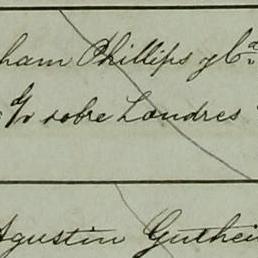 ham Phillips y Cª
G/ sobre Londres
Agustin Guthei